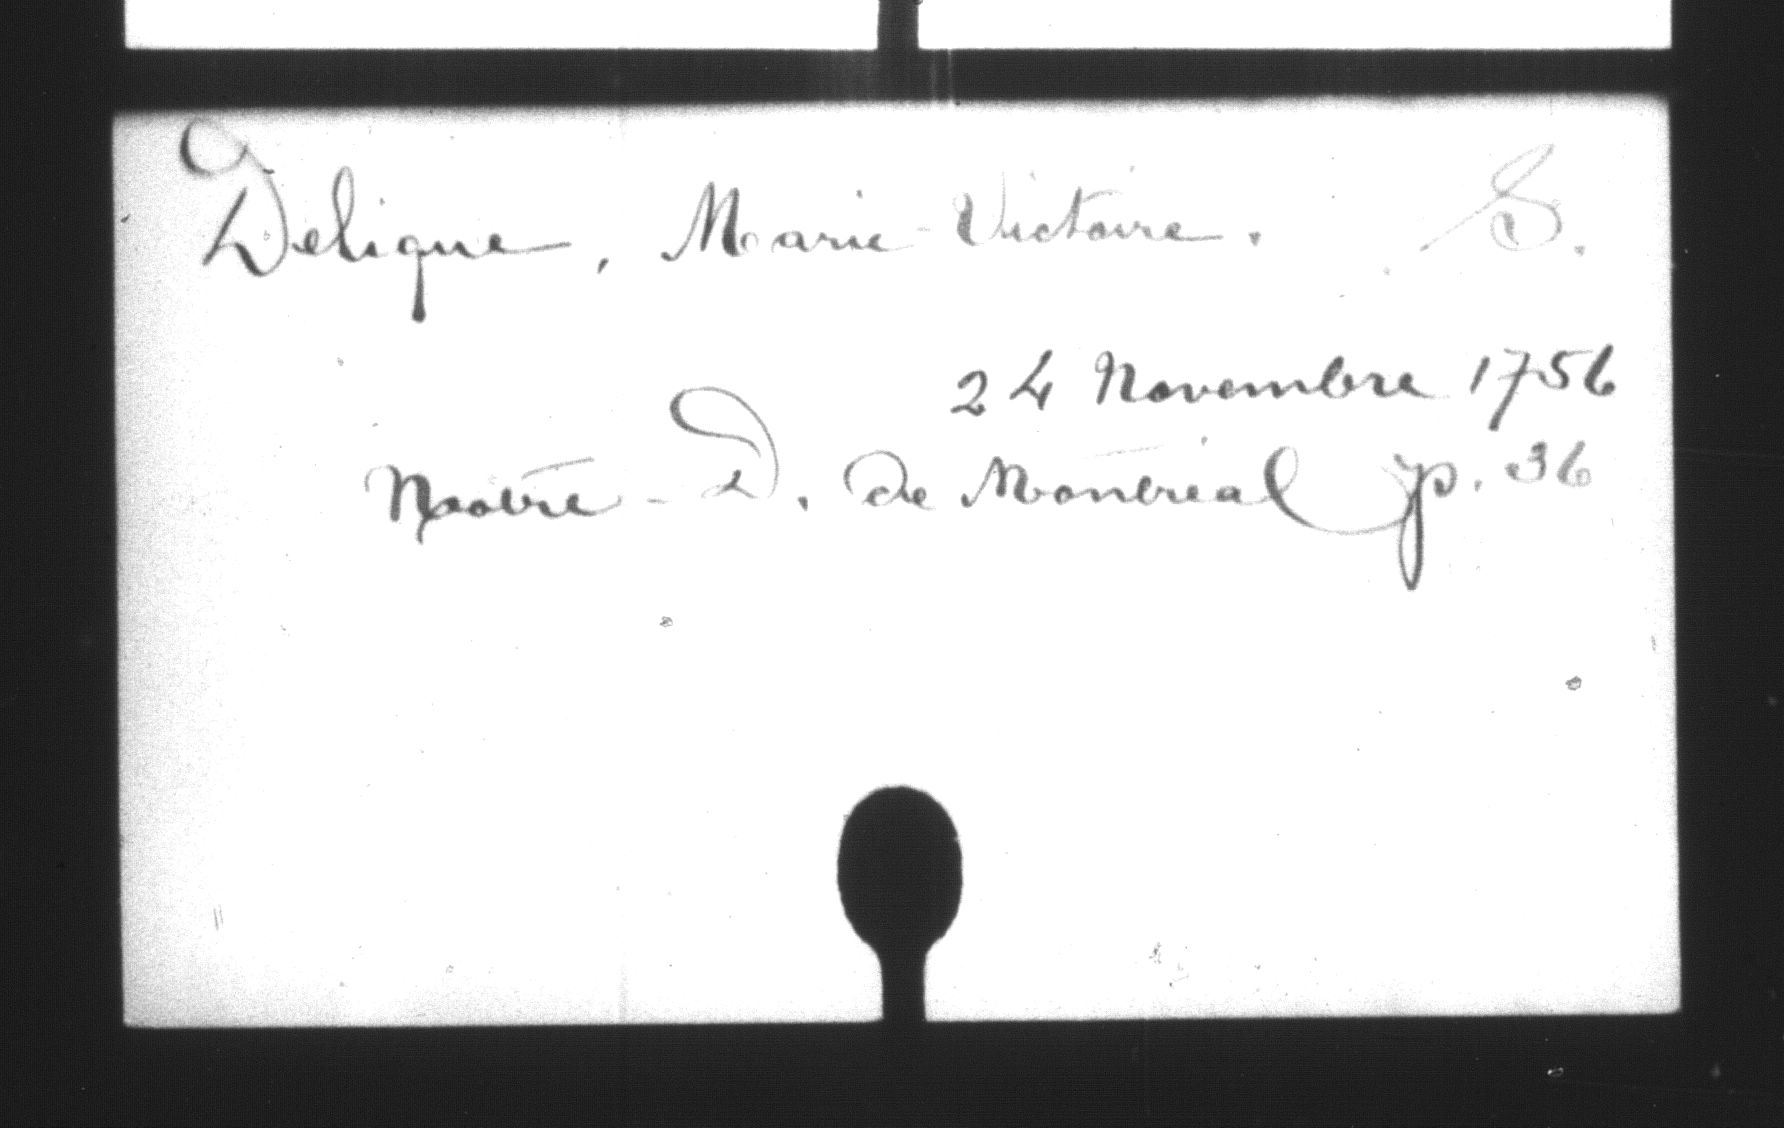 Delique, Marie-Victoire. S.
24 Novembre 1756
Notre-D. de Montréal p. 36